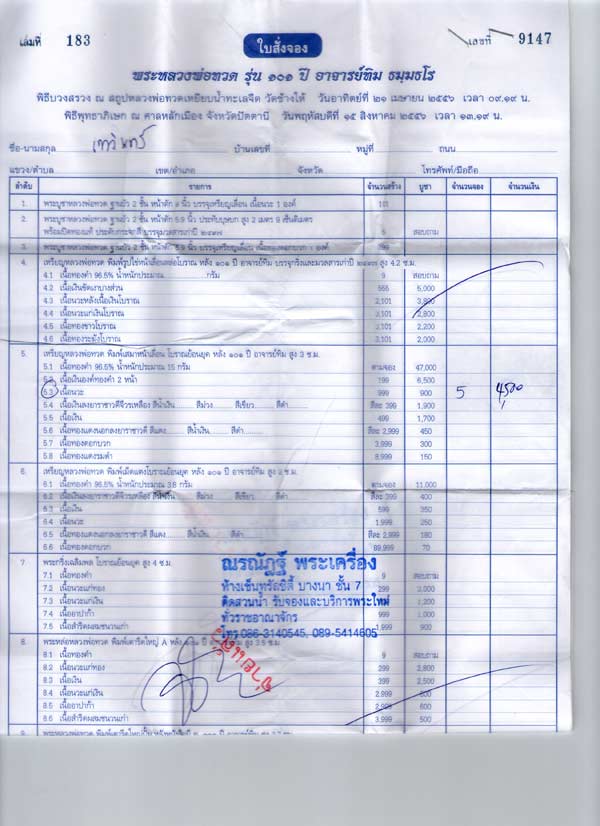 เล่มที่ 183
ใบสั่งจอง
เลขที่ 9147
พระหลวงพ่อทวด รุ่น ๑๐๑ ปี อาจารย์ทิม ธมฺมธโร
พิธีบวงสรวง ณ สถูปหลวงพ่อทวดเหยียบน้ำทะเลจืด วัดช้างให้ วันอาทิตย์ที่ ๒๑ เมษายน ๒๕๕๖ เวลา ๐๙.๑๙ น.
พิธีพุทธาภิเษก ณ ศาลหลักเมือง จังหวัดปัตตานี วันพฤหัสบดีที่ ๑๕ สิงหาคม ๒๕๕๖ เวลา ๑๓.๑๙ น.
ชื่อ-นามสกุล บ้านเลขที่ หมู่ที่ ถนน
แขวง/ตำบล เขต/อำเภอ จังหวัด โทรศัพท์/มือถือ
ลำดับ รายการ จำนวนสร้าง บูชา จำนวนจอง จำนวนเงิน
1. พระบูชาหลวงพ่อทวด ฐานบัว 2 ชั้น หน้าตัก 9 นิ้ว บรรจุเหรียญเลื่อน เนื้อนวะ 1 องค์ 101
2. พระบูชาหลวงพ่อทวด ฐานบัว 2 ชั้น หน้าตัก 5.9 นิ้ว ประทับบุษบก สูง 2 เมตร 9 เซนติเมตร
พร้อมปิดทองแท้ ประดับกระจกสี บรรจุมวลสารเก่าปี ๒๔๙๗ 5 สอบถาม
3. พระบูชาหลวงพ่อทวด ฐานบัว 2 ชั้น หน้าตัก 5.9 นิ้ว บรรจุเหรียญเลื่อน เนื้อทองดอกบวก 1 องค์ 399
4. เหรียญหลวงพ่อทวด พิมพ์รูปไข่หน้าเลื่อนเลต่อโบราณ หลัง ๑๐๑ ปี อาจารย์ทิม บรรจุกริ่งและมวลสารเก่าปี ๒๔๙๗ สูง 4.2 ซ.ม.
4.1 เนื้อทองคำ 96.5% น้ำหนักประมาณ กรัม 9 สอบถาม
4.2 เนื้อเงินชัดเงาบางส่วน 555 5,000
4.3 เนื้อนวะหลังเนื้อเงินโบราณ 2,101 3,800
4.4 เนื้อนวะแก่เงินโบราณ 3,101 2,800
4.5 เนื้อทองขาวโบราณ 2,101 2,200
4.6 เนื้อทองระฆังโบราณ 3,101 2,000
5. เหรียญหลวงพ่อทวด พิมพ์เสมาหน้าเลื่อน โบราณย้อนยุค หลัง ๑๐๑ ปี อาจารย์ทิม สูง 3 ซ.ม.
5.1 เนื้อทองคำ 96.5% น้ำหนักประมาณ 15 กรัม ตามจอง 47,000
5.2 เนื้อเงินองค์ทองคำ 2 หน้า 199 6,500
5.3 เนื้อนวะ 999 900 5 4500
5.4 เนื้อเงินลงยาราชาวดีจีวรเหลือง สีน้ำเงิน สีม่วง สีเขียว สีดำ สีละ 399 1,900
5.5 เนื้อเงิน 499 1,700
5.6 เนื้อทองแดงนอกลงยาราชาวดี สีแดง สีน้ำเงิน สีดำ สีละ 2,999 450
5.7 เนื้อทองดอกบวก 3,999 300
5.8 เนื้อทองแดงรมดำ 8,999 150
6. เหรียญหลวงพ่อทวด พิมพ์เม็ดแตงโบราณย้อนยุค หลัง ๑๐๑ ปี อาจารย์ทิม สูง 2 ซ.ม.
6.1 เนื้อทองคำ 96.5% น้ำหนักประมาณ 3.8 กรัม ตามจอง 11,000
6.2 เนื้อเงินลงยาราชาวดีจีวรเหลือง สีน้ำเงิน สีม่วง สีเขียว สีดำ สีละ 399 400
6.3 เนื้อเงิน 599 350
6.4 เนื้อนวะ 1,999 250
6.5 เนื้อทองแดงนอกลงยาราชาวดี สีแดง สีน้ำเงิน สีดำ สีละ 2,999 180
6.6 เนื้อทองดอกบวก 89,999 70
7. พระกริ่งเฉลิมพล โบราณย้อนยุค สูง 4 ซ.ม.
7.1 เนื้อทองคำ 9 สอบถาม
7.2 เนื้อนวะแก่ทอง 299 3,000
7.3 เนื้อนวะแก่เงิน 1,200
7.4 เนื้ออาปาก้า 999 1,000
7.5 เนื้อสำริดผสมชนวนเก่า 1,999 900
ณรณัฏฐ์ พระเครื่อง
ห้างเซ็นทรัลซิตี้ บางนา ชั้น 7
ติดสวนน้ำ รับจองและบริการพระใหม่
ทั่วราชอาณาจักร
โทร.086-3140545, 089-5414605
8. พระหล่อหลวงพ่อทวด พิมพ์เตารีดใหญ่ A หลัง
8.1 เนื้อทองคำ 9 สอบถาม
8.2 เนื้อนวะแก่ทอง 299 2,800
8.3 เนื้อเงิน 399 2,500
8.4 เนื้อนวะแก่เงิน 2,999 800
8.5 เนื้ออาปาก้า 2,999 600
8.6 เนื้อสำริดผสมชนวนเก่า 3,999 500
จ่ายแล้ว